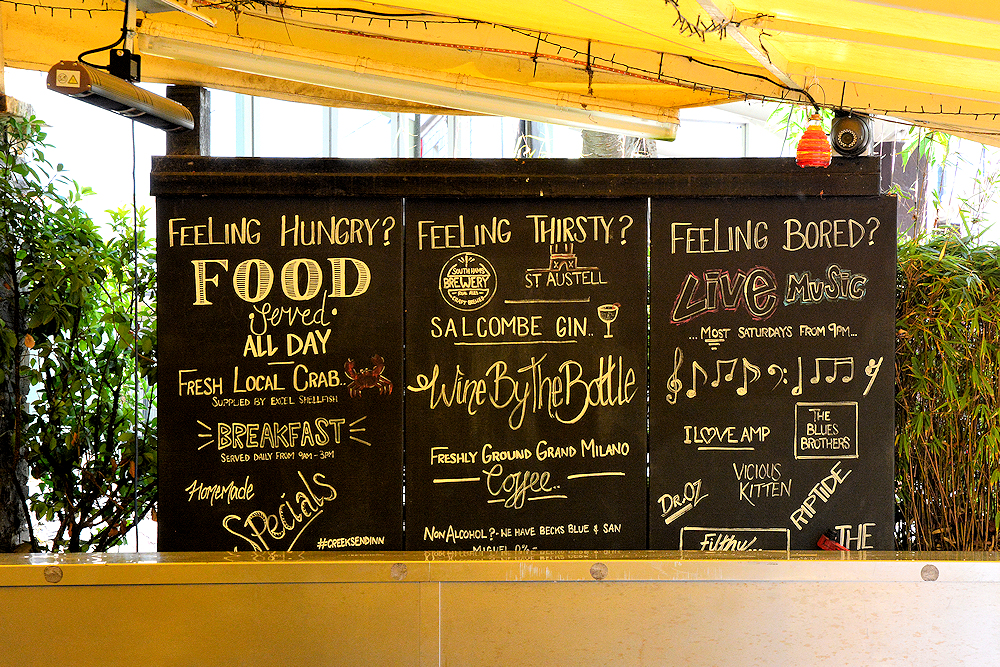 FEELING HUNGRY?
FOOD
Served
ALL DAY
FRESH LOCAL CRAB..
SUPPLIED BY EXCEL SHELLFISH
BREAKFAST
SERVED DAILY FROM 9AM - 3PM
HOMEMADE
SPecials
#CREEKSENDINN
FEELING THIRSTY?
SOUTH HAMS
BREWERY
CRAFT BREWER
ST AUSTELL
SALCOMBE GIN..
Wine By The Bottle
FRESHLY GROUND GRAND MILANO
Coffee..
NON ALCOHOL? - WE HAVE BECKS BLUE & SAN
MIGUEL 0% -
FEELING BORED?
LIVE MUSIC
...MOST SATURDAYS FROM 9PM...
I LOVE AMP
THE
BLUES
BROTHERS
DR.OZ
VICIOUS
KITTEN
RIPTIDE
Filthy...
THE